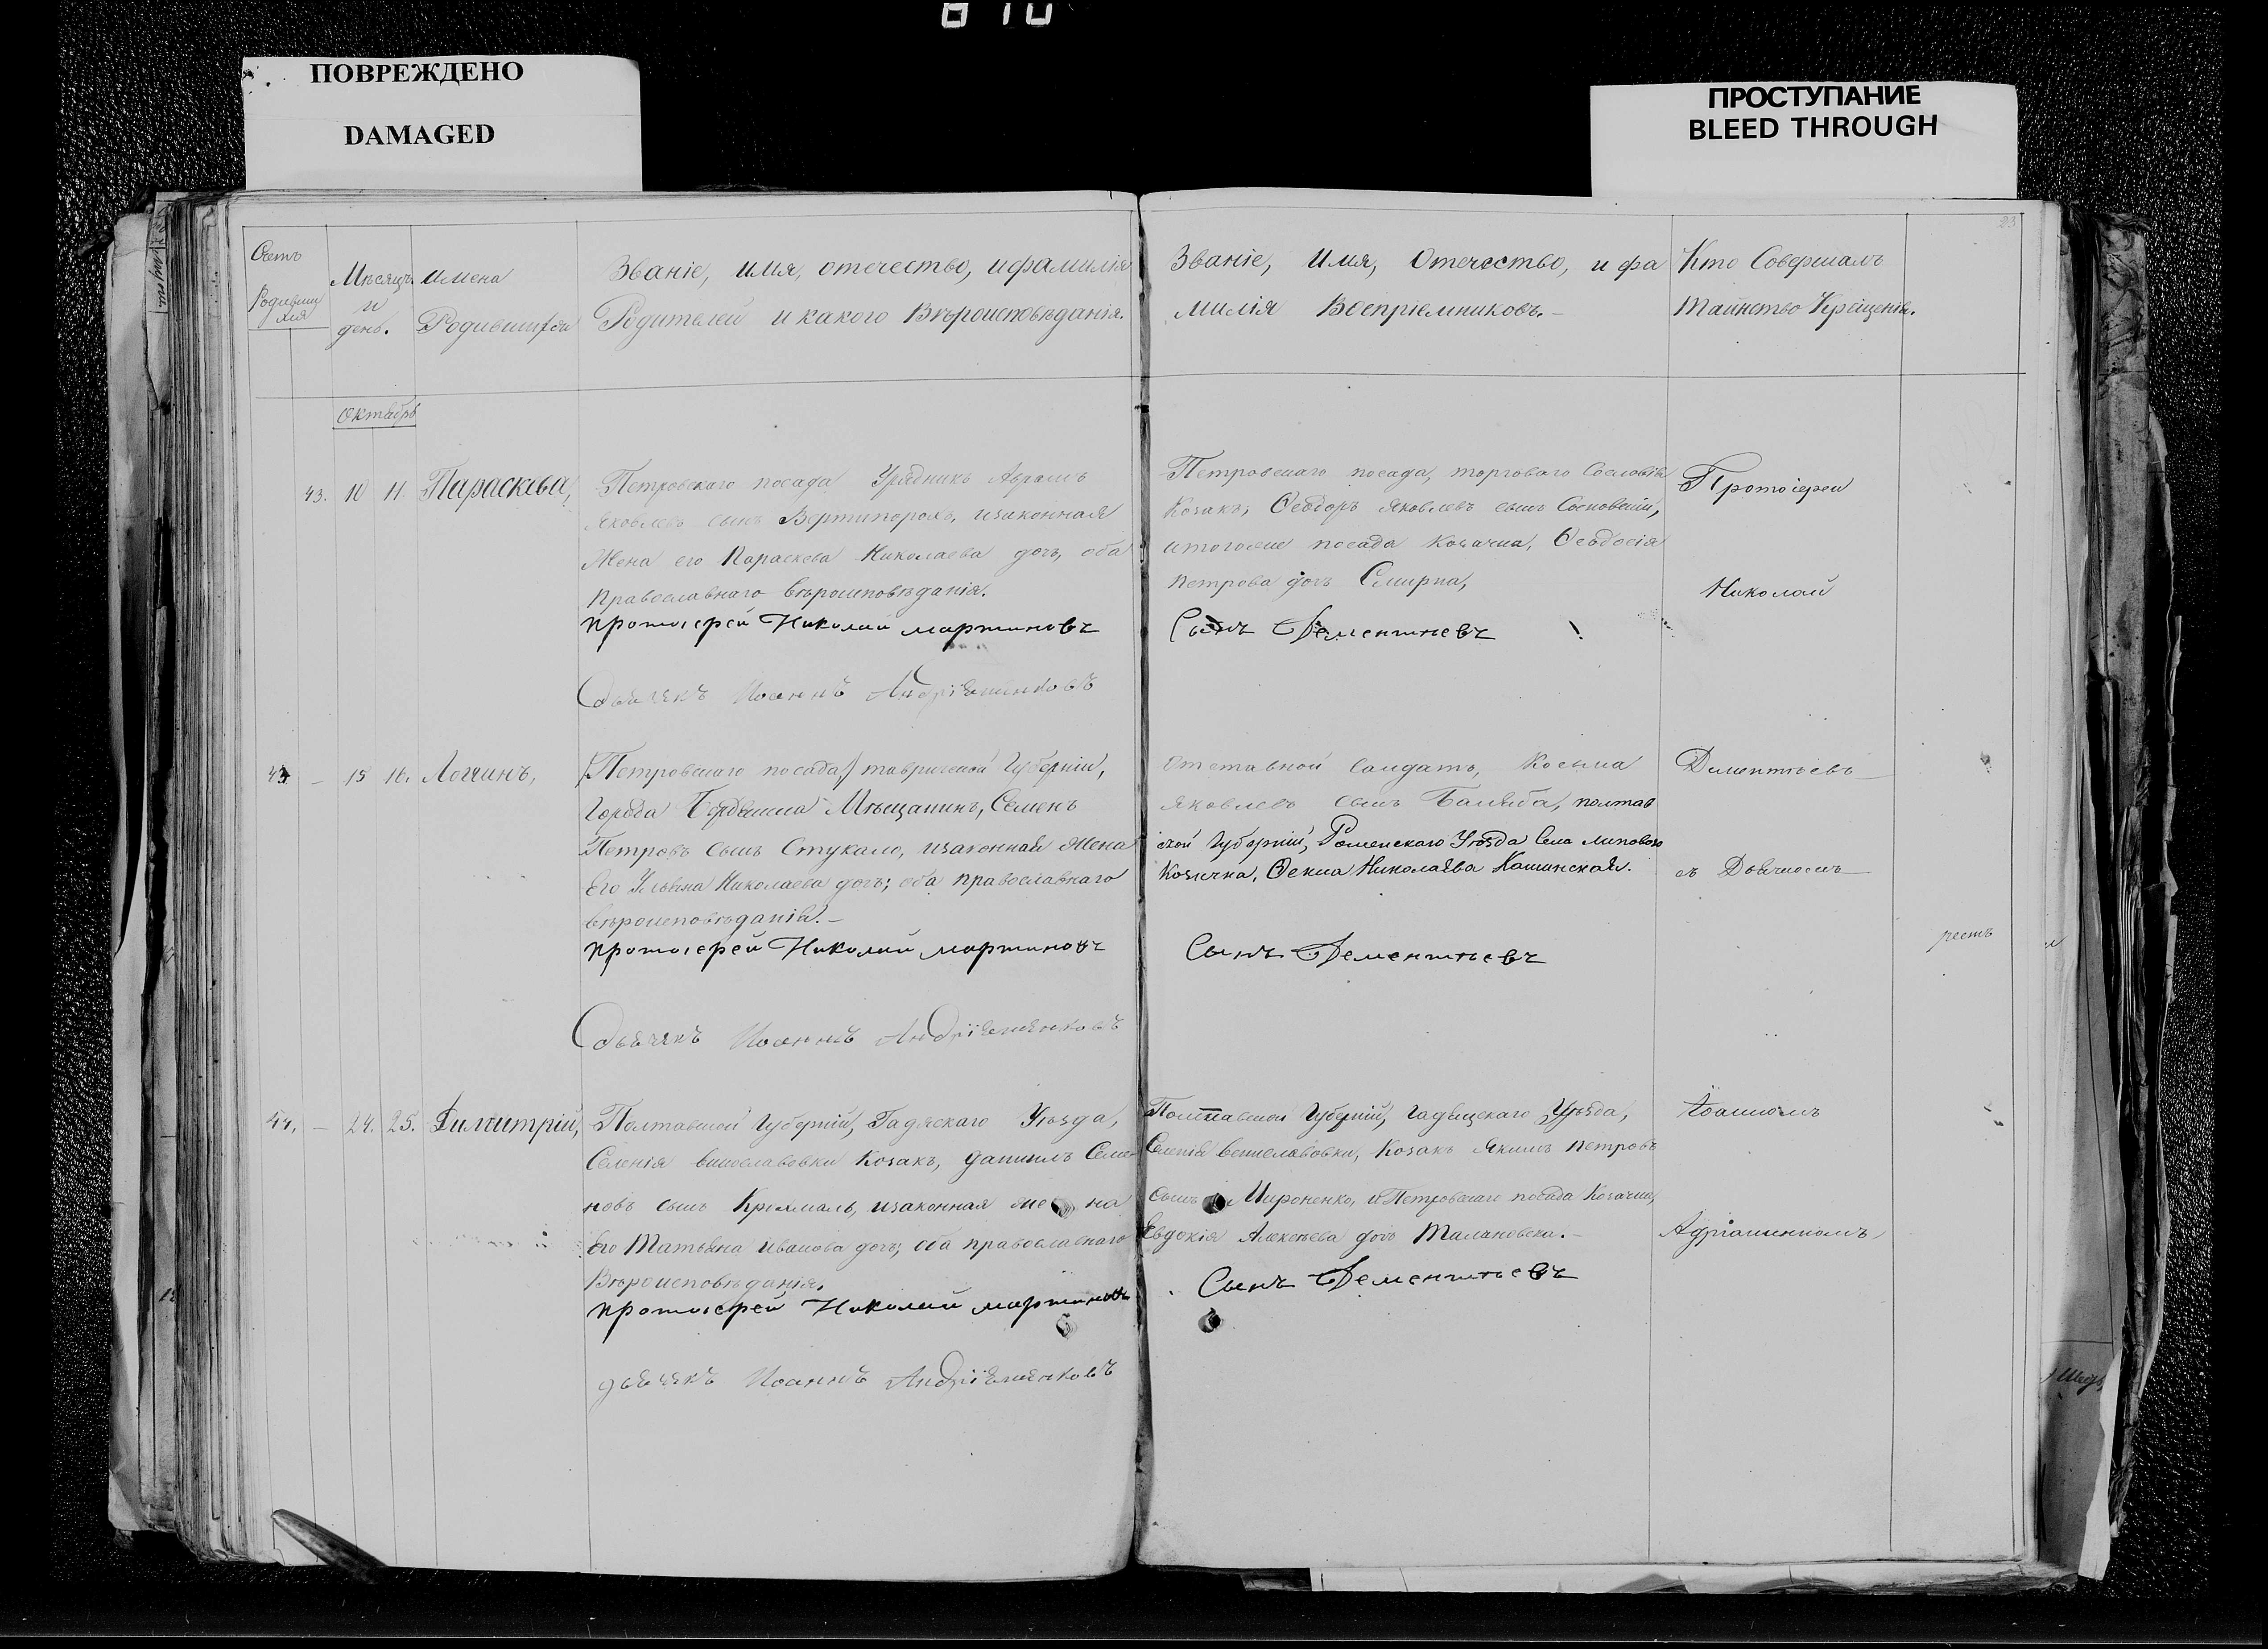 ПОВРЕЖДЕНО
DAMAGED
ПРОСТУПАНИЕ
BLEED THROUGH
23
Счетъ
Родивши
Мѣсяцъ
и
день.
имена
Родившихся
Званіе, имя, отечество, и фамилія
Родителей и какого Вѣроисповѣданія.
Званіе, Имя, Отечество, и фа
милія Воспріемниковъ.
Кто Совершалъ
Таинство Крещенія.
Октябрь
43. 10 11 Параскева,
Петровскаго посада Урядникъ Аврамъ
Яковлевъ сынъ Вертипорохъ, изаконная
Жена его Параскева Николаева дочь, оба
православнаго вѣроисповѣданія.
протоіерей Николай мартиновъ
Дьячекъ Иоаннъ
Петровскаго посада, торговаго Сословія
Козакъ, Ѳеодоръ Яковлевъ сынъ Сосновскій,
итогоже посада козачка, Ѳеодосія
петрова дочь Смирна,
Сынъ Дементьевъ
Протоіерей
Николай
43 – 15 16. Логгинъ,
(Петровскаго посада) таврической Губерніи,
Города Бердянска Мѣщанинъ, Семенъ
Петровъ сынъ Стукало, изаконная Жена
Его Ульяна Николаева дочь; оба православнаго
вѣроисповѣданія.
протоіерей Николай мартиновъ
Дьячекъ Иоаннъ
Отставной солдатъ, Косьма
Яковлевъ сынъ полтав
ской Губерніи, Роменскаго Уѣзда Села липового
Козачка, Ѳекла Николаева
Сынъ Дементьевъ
Дементьевъ
съ Дьячкомъ
44. – 24. 25. Димитрій,
Полтавской Губерніи, Гадяскаго Уѣзда,
Селенія Козакъ, даниилъ Семе
новъ сынъ изаконная жена
Его Татьяна Иванова дочь; оба православнаго
Вѣроисповѣданія.
протоіерей Николай мартиновъ
дьячекъ Иоаннъ
Полтавской Губерніи, Уѣзда,
Селенія Козакъ Якимъ петровъ
сынъ Мироненко, и Петровскаго посада Козачка,
Евдокія Алексѣева дочь
Сынъ Дементьевъ
Іоанномъ